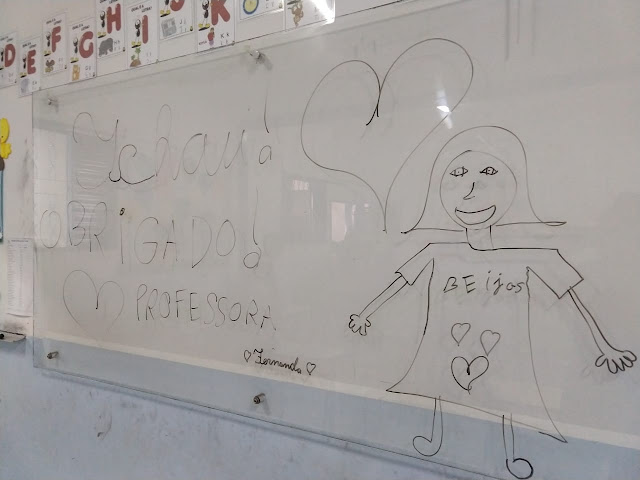 D E F G H I J K
Tchau!
OBRiGADO!
PROFESSORA
Fernanda
BEijos